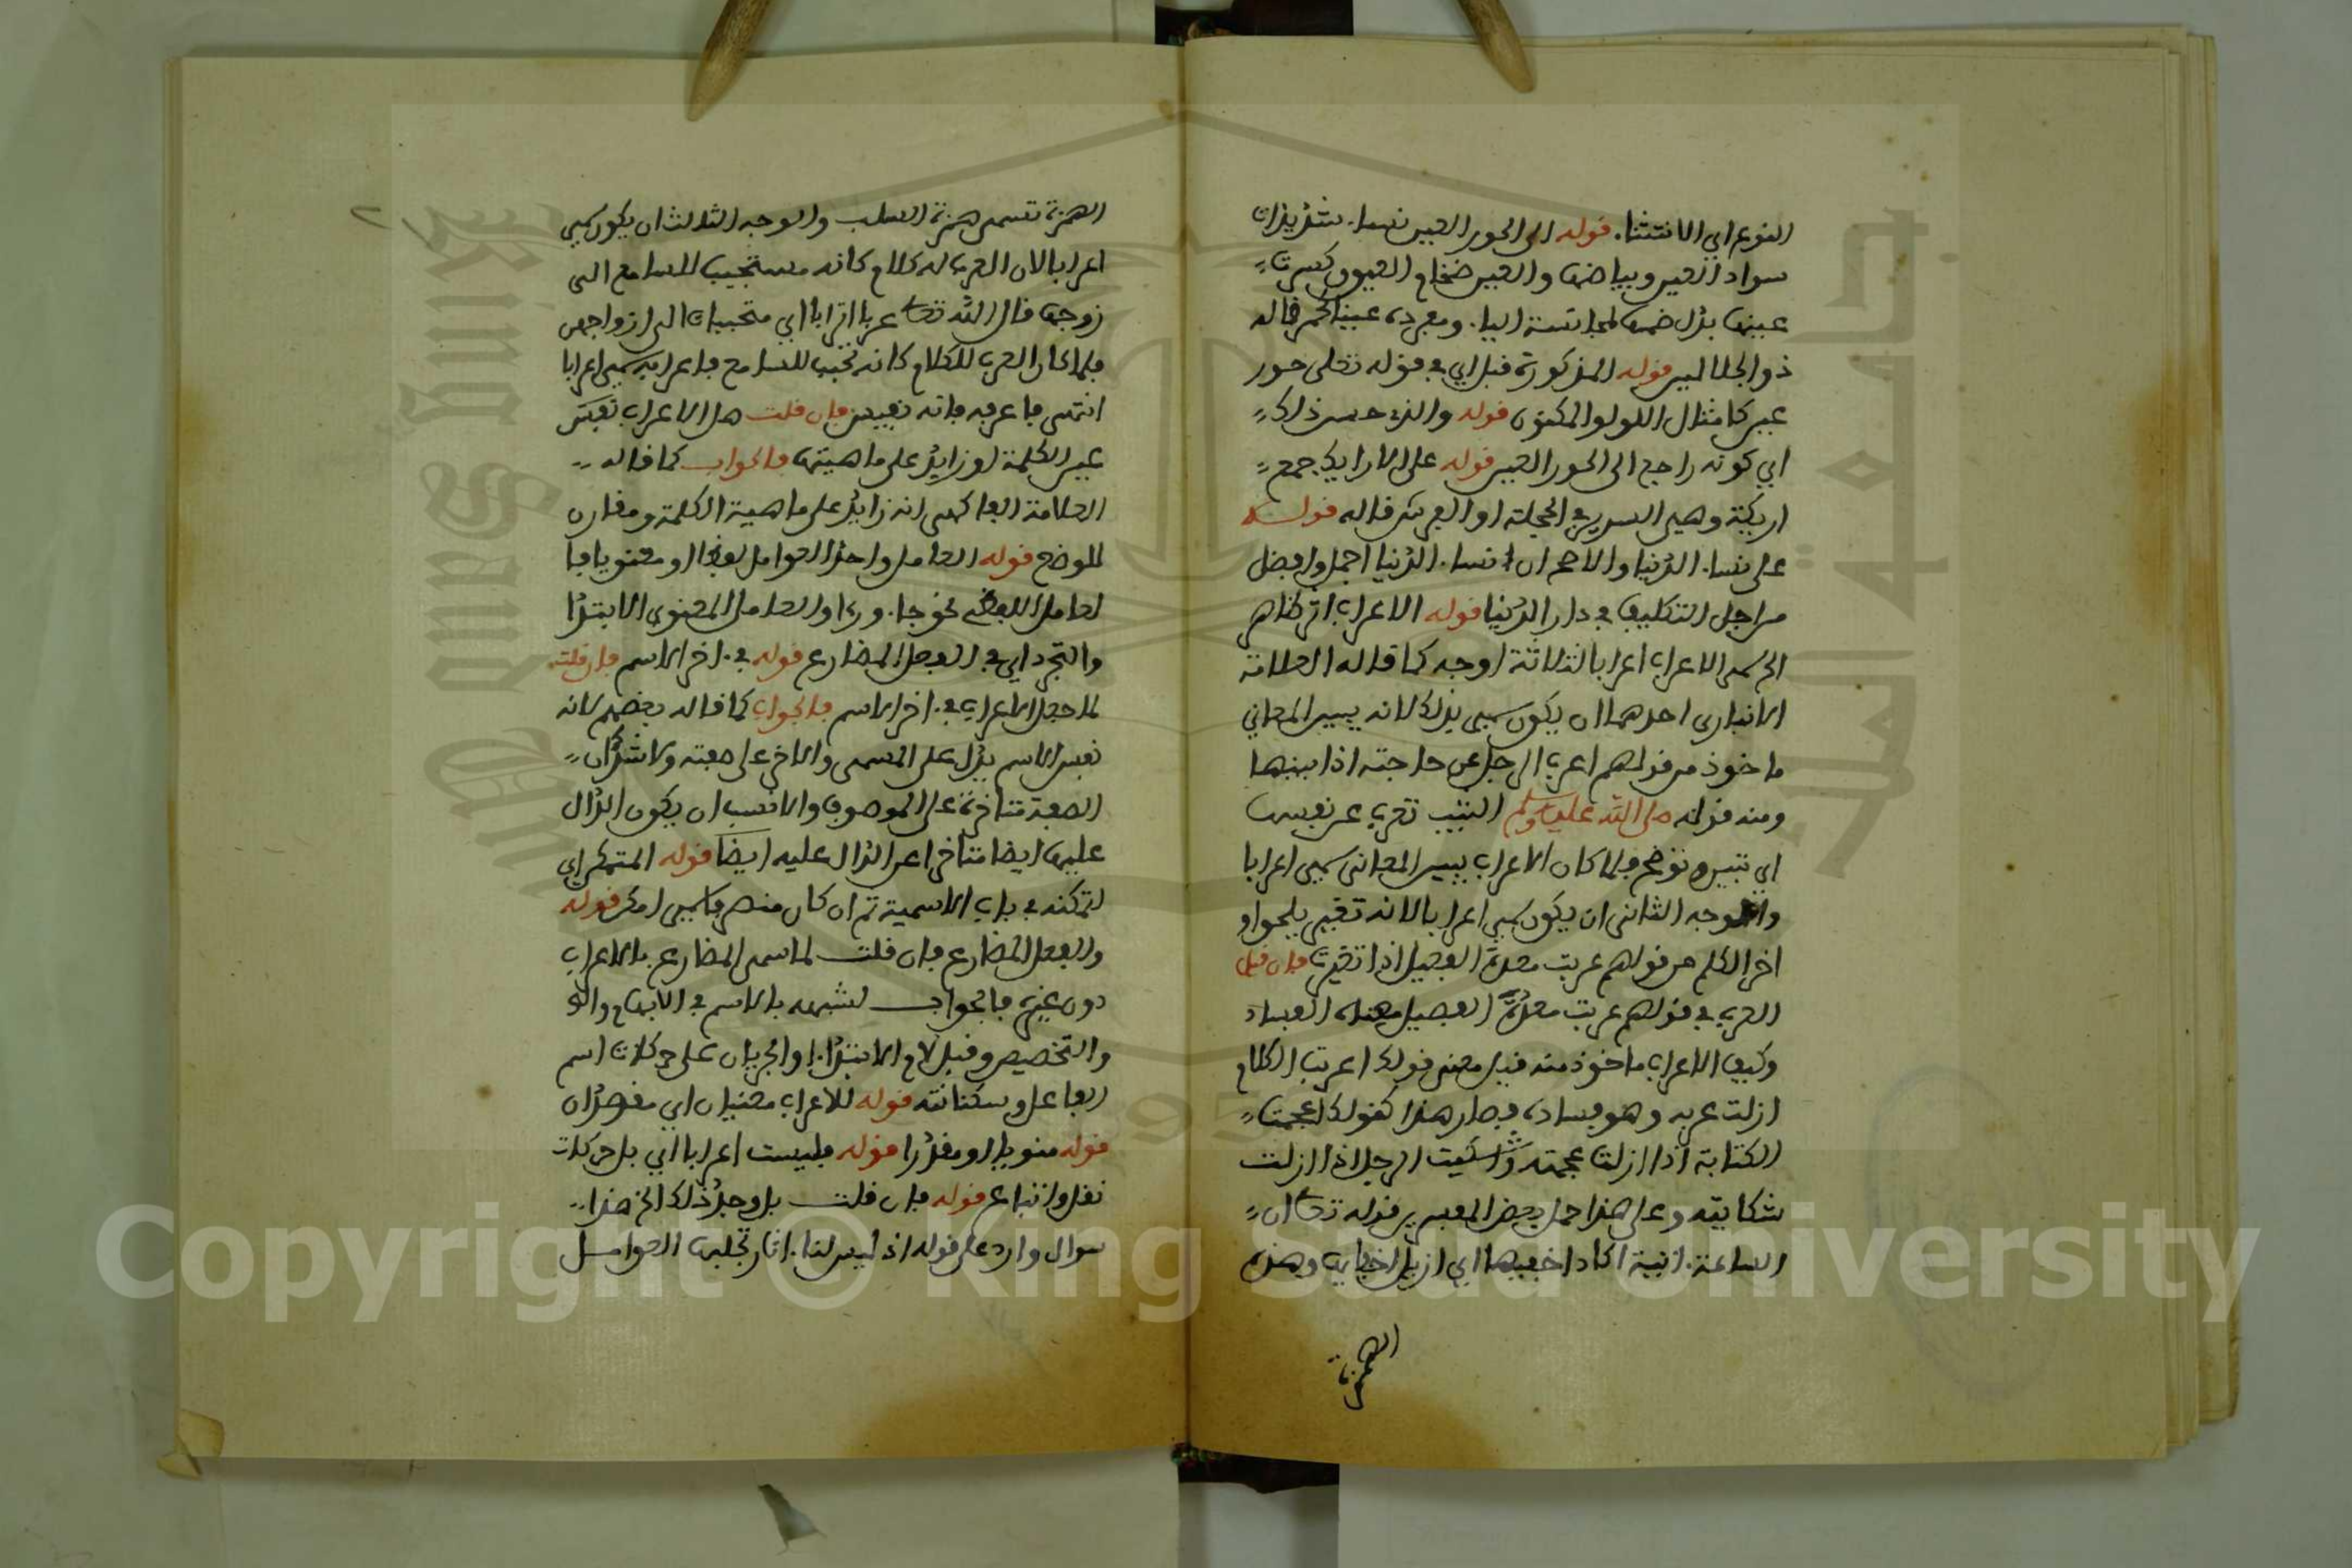 النوع اي الانتشاء. قوله الى الحور العين نساء. شديدات
سواد العين وبياضها والعين ضخام العيون كسرت
عينها بدل ضمها لمجانسة الياء. ومفرده عيناء كحمراء قاله
ذو الجلالين قوله المذكورة قبل اي في قوله تعلى حور
عين كامثال اللولو المكنون قوله والذي حسن ذلك
اي كونه راجع الى الحور العين قوله على الارايك جمع
اريكة وهي السرير في الحجلة او الفرش قاله قوله
على نساء. الدنيا والاصح ان نساء. الدنيا اجمل وافضل
من اجل التكليف في دار الدنيا قوله الاعراب اثر ظاهر
الخ سمى الاعراب اعرابا لثلاثة اوجه كما قاله العلامة
الانباري احدهما ان يكون سمي بذلك لانه يبين المعاني
ماخوذ من قولهم اعرب الرجل عن حاجته اذا بينها
ومنه قوله صلى الله عليه وسلم الثيب تعرب عن نفسها
اي تبين وتوضح فلما كان الاعراب يبين المعانى سمي اعرابا
والوجه الثاني ان يكون سمي اعرابا لانه تغيير يلحق او
اخر الكلم من قولهم عربت معدة الفصيل اذا تغيرت فان قيل
العرب في قولهم عربت معدة الفصيل معناه الفساد
وكيف الاعراب ماخوذ منه قيل معنى قولك اعربت الكلام
ازلت عربه وهو فساده فصار هذا كقولك اعجمت
الكتابة اذا ازلت عجمته واشكيت الرجل اذا ازلت
شكايته وعلى هذا حمل بعض المفسرين قوله تعا ان
الساعة. اتية اكاد اخفيها اي ازيل اخفايها وهذه
الهمزة
الهمزة تسمى همزة السلب والوجه الثالث ان يكون سمي
اعرابا لان المعرب له كلام كانه مستجيب للسامع الى
زوجها قال الله تعا عربا اترابا اي متحببات الى ازواجهن
فلما كان المعرب للكلام كانه تحبب للسامع باعرابه سمي اعرابا
انتهى فاعرفه فانه نفيس فان قلت هل الاعراب نفس
عين الكلمة او زايد على ماهيتها فالجواب كما قاله
العلامة الفاكهي انه زايد على ماهية الكلمة ومقارن
للوضع قوله العامل واحد العوامل لفظا او معنويا فا
لعامل اللفظي نحو جاء. وراء والعامل المعنوي الابتدا
والتجرد اي في الفعل المضارع قوله في. اخر الاسم فان قلت
لما جعل الاعراب في. اخر الاسم فالجواب كما قاله بعضهم لانه
نفس الاسم يدل على المسمى والاخر على صفته ولا شك ان
الصفة متاخرة على الموصوف والانسب ان يكون الدال
عليها ايضا متاخرا عن الدال عليه ايضا قوله المتمكن اي
لتمكنه في باب الاسمية ثم ان كان منصرفا سمي امكن قوله
والفعل المضارع فان قلت لما سمى المضارع بالاعراب
دون غيره فالجواب لشبهه بالاسم في الابهام
والتخصيص وقبل لام الابتدا. والجريان على حركات اسم
الفاعل وسكناته قوله للاعراب معنيان اي مقصدان
قوله منويا او مقدرا قوله فليست اعرابا اي بل حركات
نقل واتباع قوله فان قلت بل وجد ذلك الخ هذا
سوال وارد على قوله اذ ليس لنا. اثار تجلبها العوامل
Copyright © King Saud University